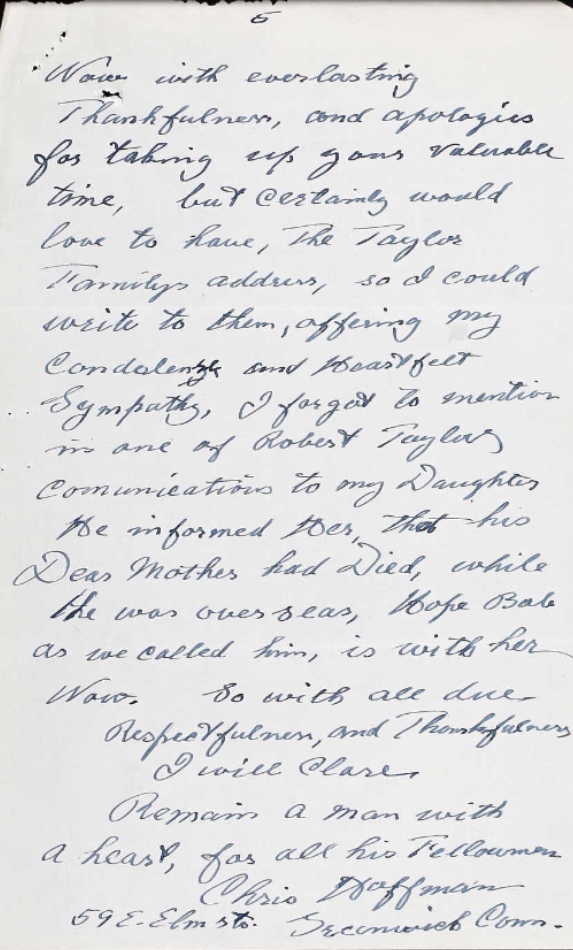 5
Now with everlasting
Thankfulness, and apologies
for taking up your valuable
time, but certainly would
love to have, The Taylor
Familys address, so I could
write to them, offering my
Condolence and Heartfelt
Sympathy, I forgot to mention
in one of Robert Taylors
comunications to my Daughter
He informed Her, that his
Dear Mother had Died, while
He was overseas, Hope Bob
as we called him, is with her
Now. So with all due
Respectfulness, and Thankfulness
I will Close
Remain a man with
a heart, for all his Fellowmen
Chris Hoffman
59 E. Elm st. Greenwich Conn.